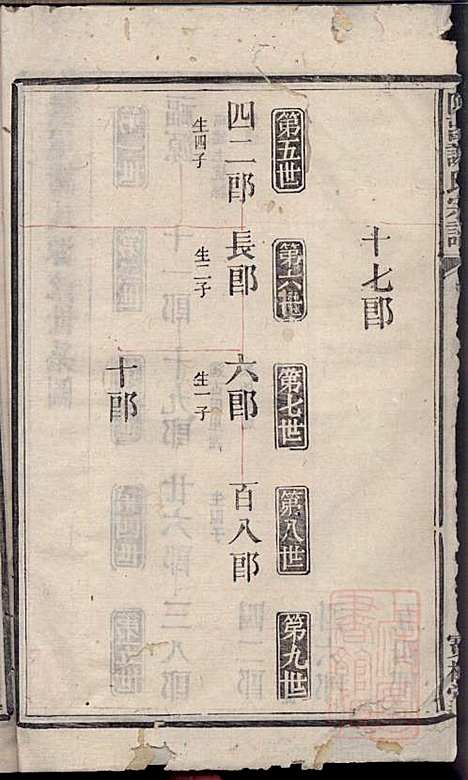 十七郎
第五世
第六世
第七世
第八世
第九世
四二郎
長郎
六郎
百八郎
生四子
生二子
生一子
十郎
氏宗譜